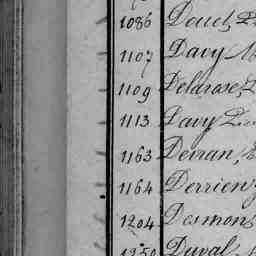 1086 Doucy
1107 Davy
1109 Delarose,
1113 Davy
1163 Devran,
1164 Derrien,
1204 Desmons
1250 Duval